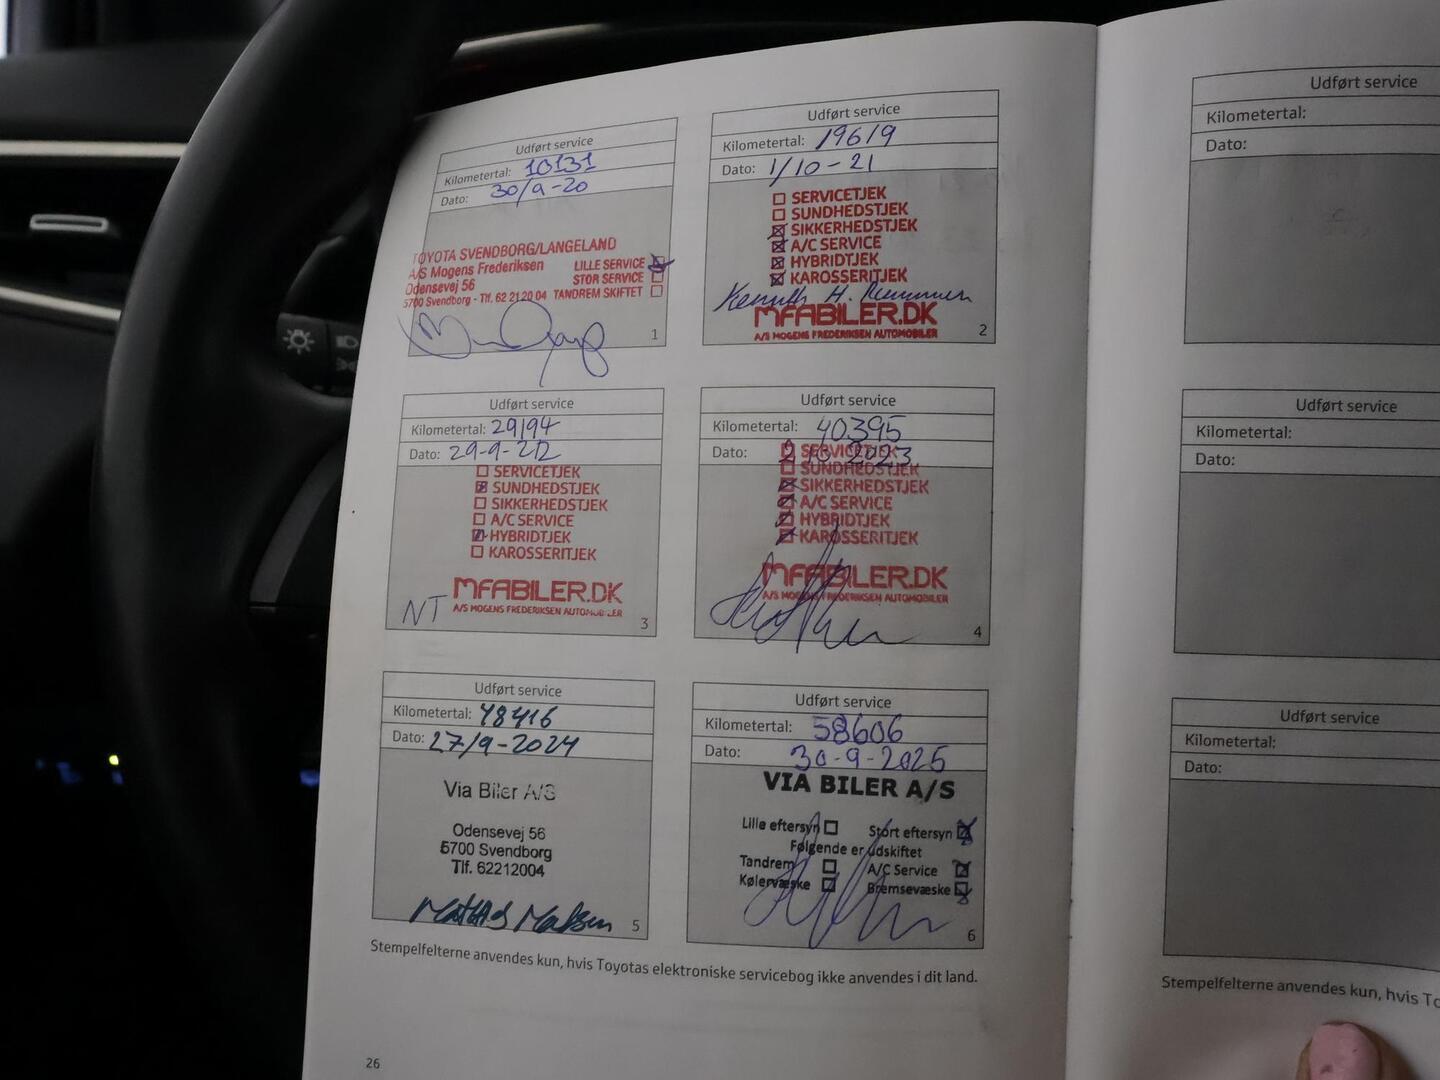 Udført service
Kilometertal: 10131
Dato: 30/9-20
TOYOTA SVENDBORG/LANGELAND
A/S Mogens Frederiksen LILLE SERVICE
Odensevej 56 STOR SERVICE
5700 Svendborg - Tlf. 62 21 20 04 TANDREM SKIFTET
1
Udført service
Kilometertal: 19619
Dato: 1/10-21
SERVICETJEK
SUNDHEDSTJEK
SIKKERHEDSTJEK
A/C SERVICE
HYBRIDTJEK
KAROSSERITJEK
Kenneth H.
MFABILER.DK
A/S MOGENS FREDERIKSEN AUTOMOBILER
2
Udført service
Kilometertal: 29194
Dato: 29-9-22
SERVICETJEK
SUNDHEDSTJEK
SIKKERHEDSTJEK
A/C SERVICE
HYBRIDTJEK
KAROSSERITJEK
MFABILER.DK
NT A/S MOGENS FREDERIKSEN AUTOMOBILER
3
Udført service
Kilometertal: 40395
Dato: 2023
SERVICETJEK
SUNDHEDSTJEK
SIKKERHEDSTJEK
A/C SERVICE
HYBRIDTJEK
KAROSSERITJEK
MFABILER.DK
A/S MOGENS FREDERIKSEN AUTOMOBILER
4
Udført service
Kilometertal: 48416
Dato: 27/9-2024
Via Biler A/S
Odensevej 56
5700 Svendborg
Tlf. 62212004
5
Udført service
Kilometertal: 58606
Dato: 30-9-2025
VIA BILER A/S
Lille eftersyn Stort eftersyn
Følgende er udskiftet
Tandrem A/C Service
Kølervæske Bremsevæske
6
Stempelfelterne anvendes kun, hvis Toyotas elektroniske servicebog ikke anvendes i dit land.
26
Udført service
Kilometertal:
Dato:
Udført service
Kilometertal:
Dato:
Udført service
Kilometertal:
Dato:
Stempelfelterne anvendes kun, hvis To